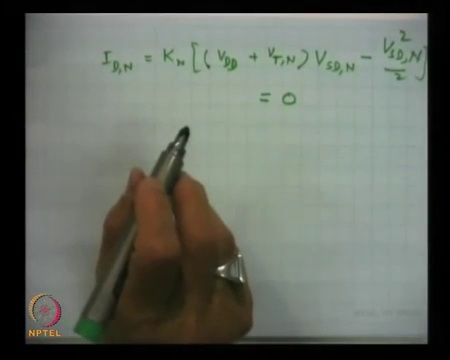 I_{D,N} = K_N [(V_{DD} + V_{T,N}) V_{SD,N} - V_{SD,N}^2/2]
= 0
NPTEL